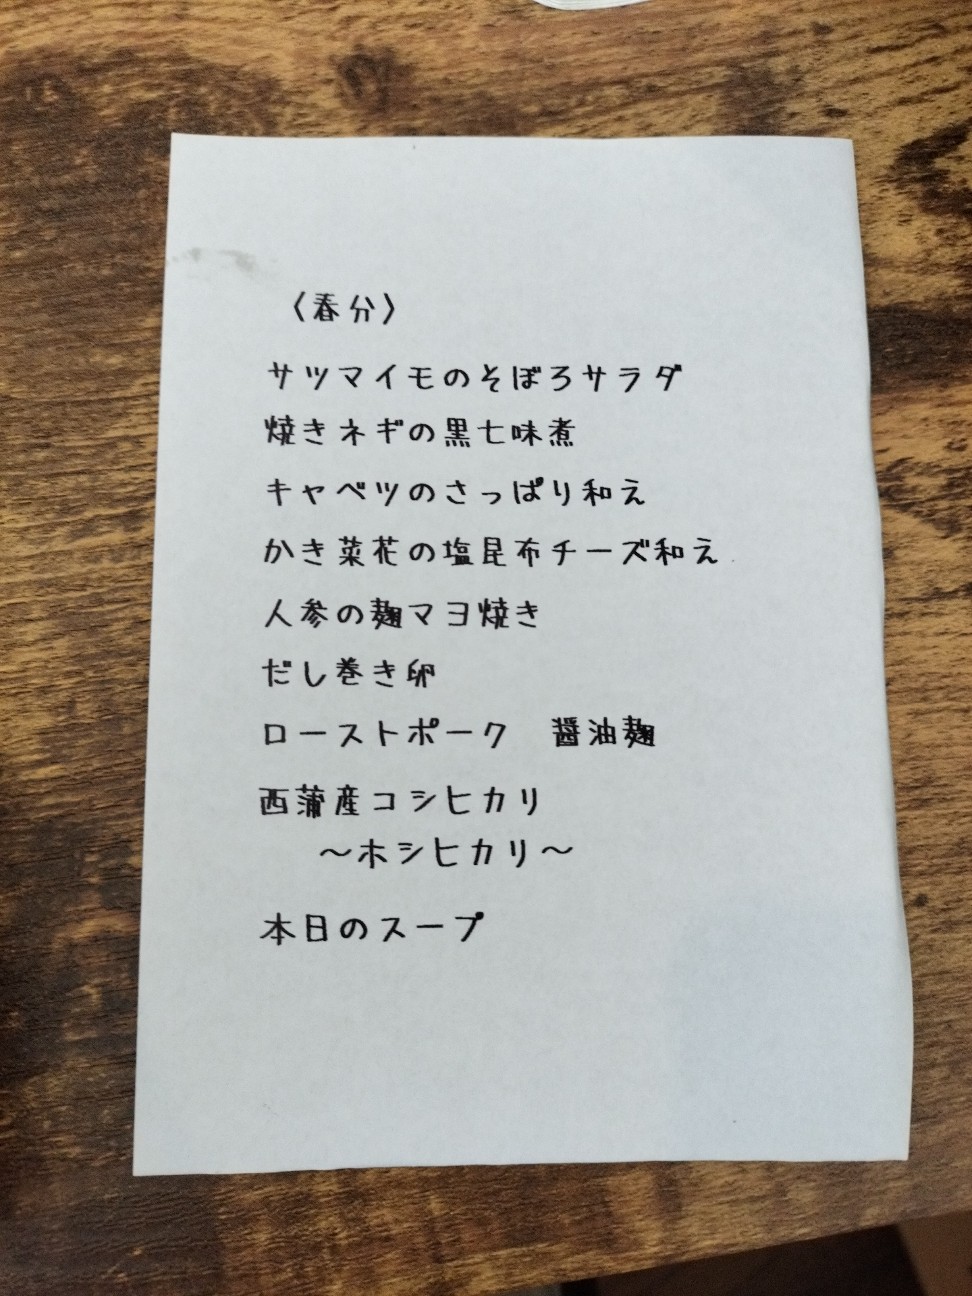 〈春分〉
サツマイモのそぼろサラダ
焼きネギの黒七味煮
キャベツのさっぱり和え
かき菜花の塩昆布チーズ和え
人参の麹マヨ焼き
だし巻き卵
ローストポーク　醤油麹
西蒲産コシヒカリ
～ホシヒカリ～
本日のスープ